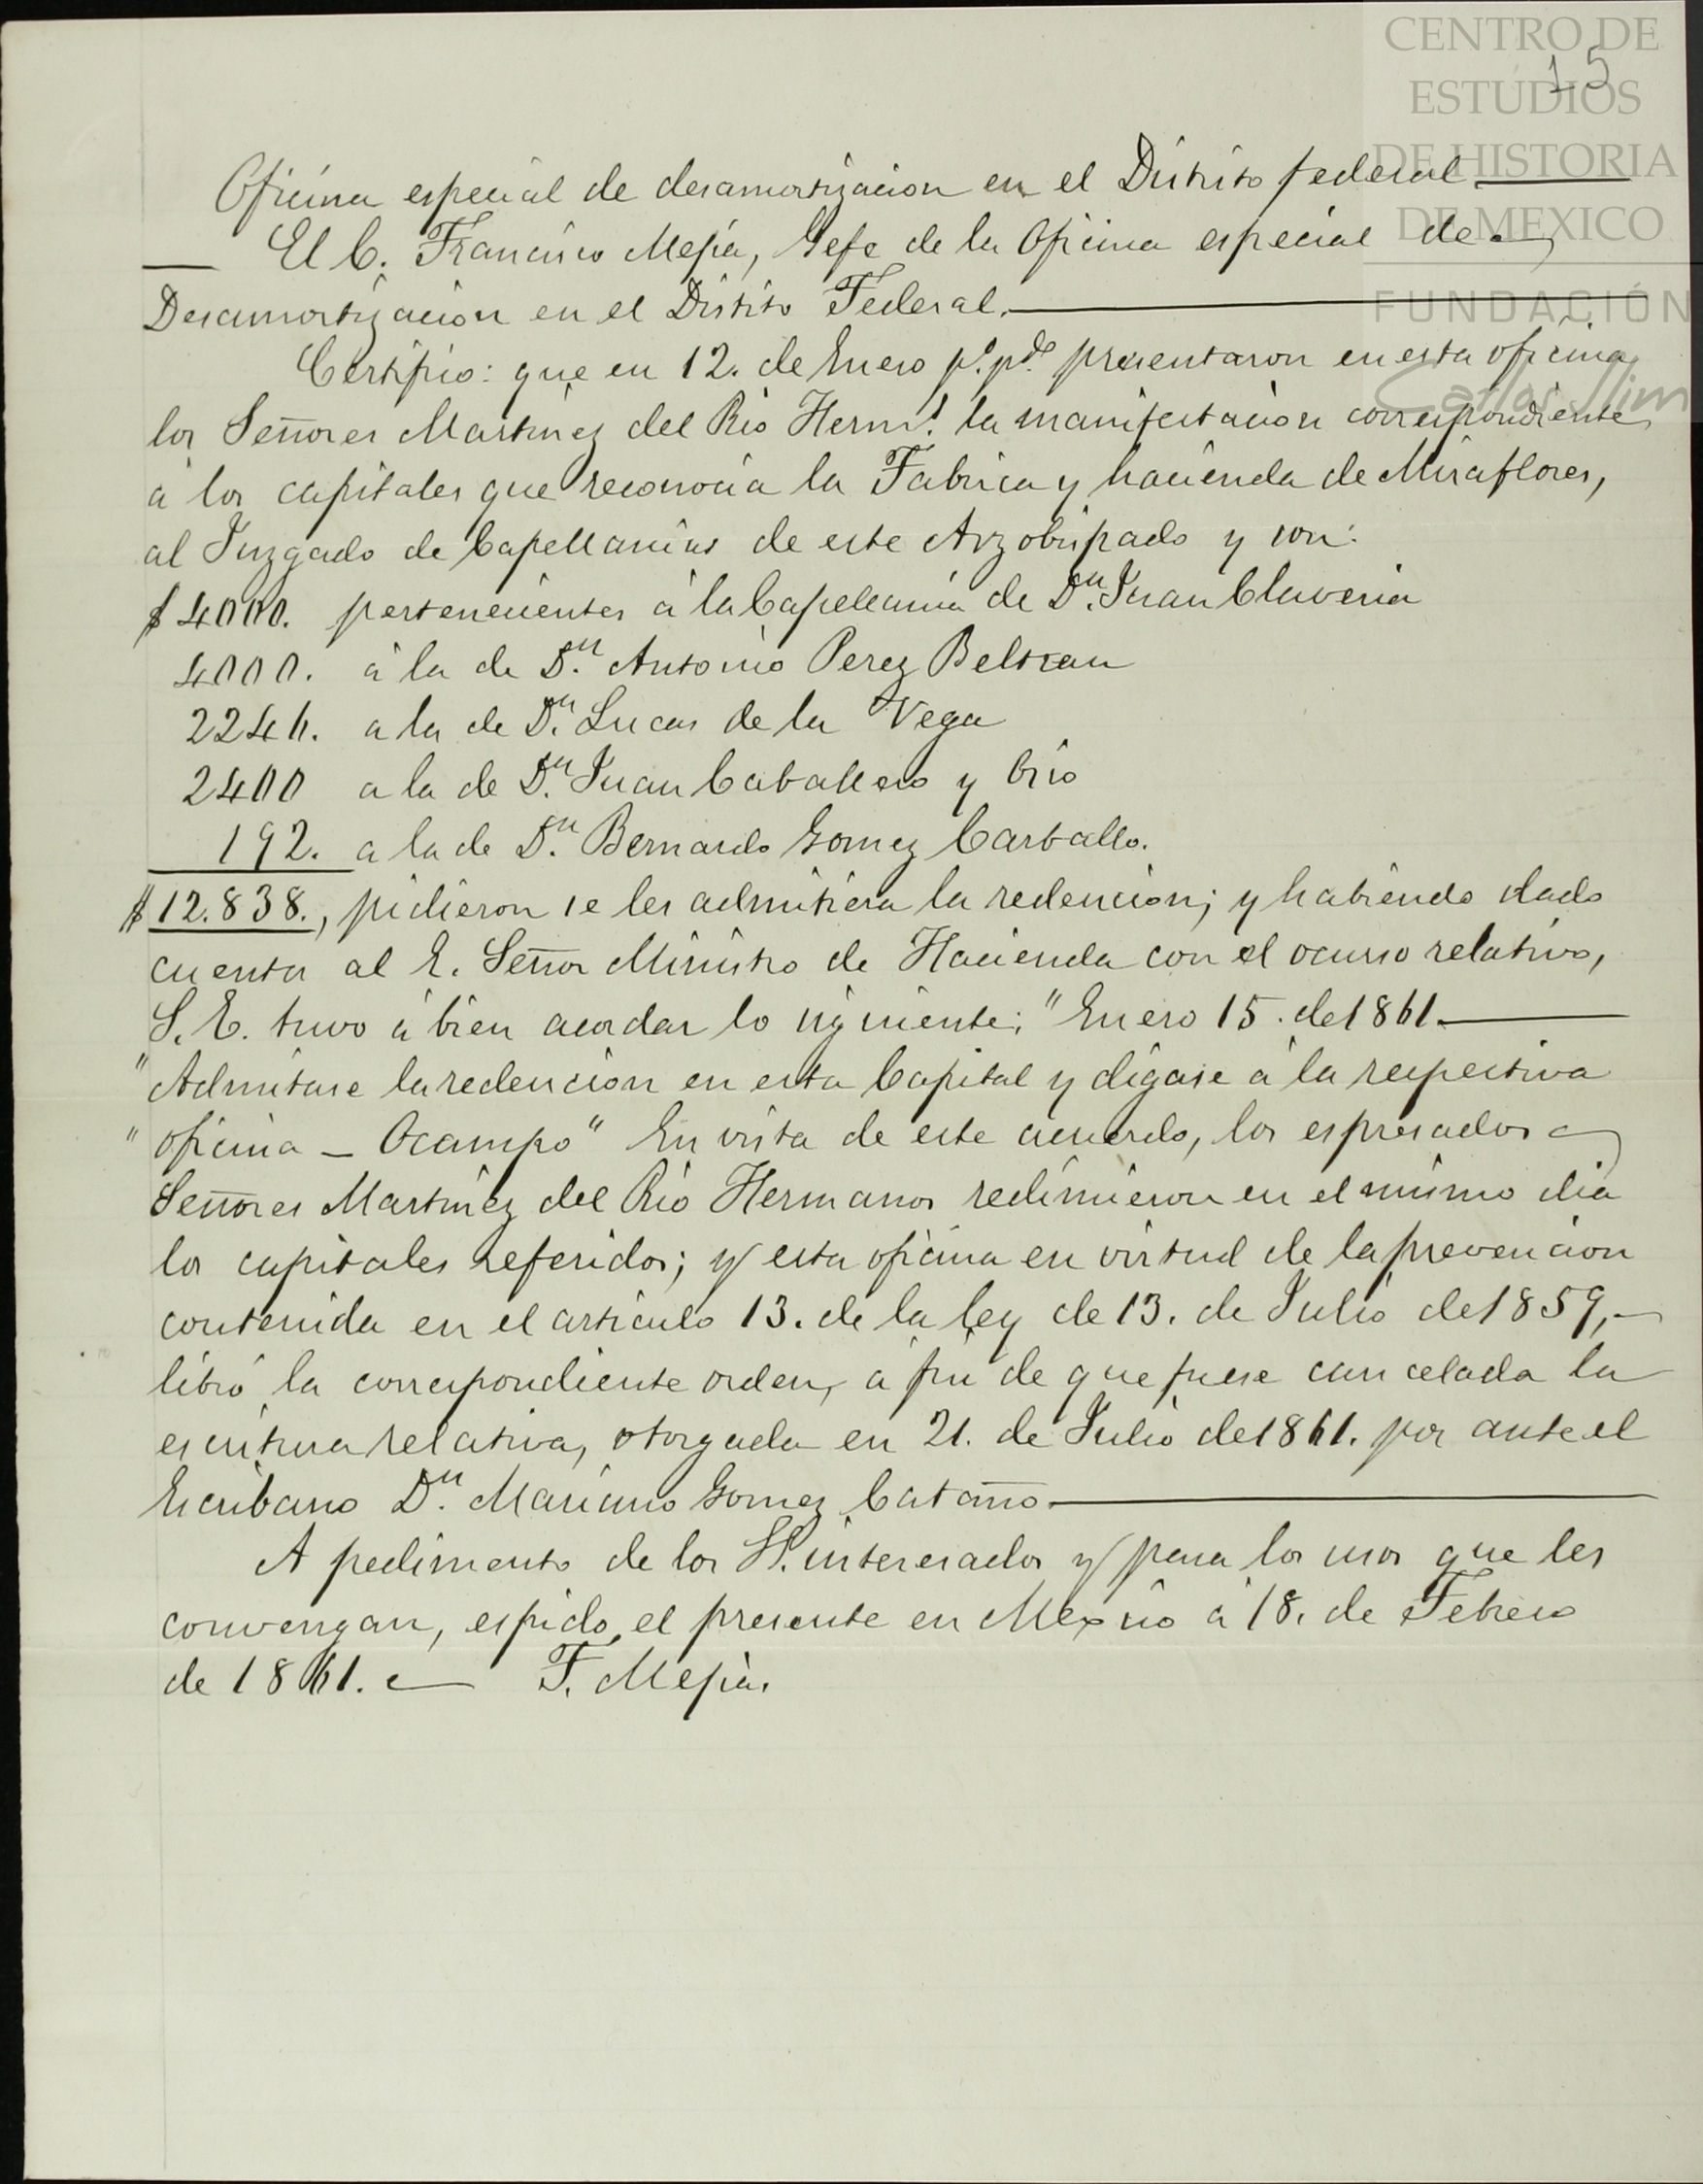 CENTRO DE
ESTUDIOS
DE HISTORIA
DE MEXICO
FUNDACIÓN
Carlos Slim
15
Oficina especial de desamortizacion en el Distrito federal.
El C. Francisco Mejia, Gefe de la Oficina especial de
Desamortizacion en el Distrito Federal.
Certifico: que en 12. de Enero p.º p.do presentaron en esta oficina
los Señores Martinez del Rio Herm.s la manifestacion correspondiente
á los capitales que reconocia la Fabrica y hacienda de Miraflores,
al Juzgado de Capellanias de este Arzobispado y son:
$ 4000. pertenecientes á la Capellania de D.n Juan Claveria
4000. á la de D.n Antonio Perez Beltran
2246. a la de D.n Lucas de la Vega
2400 a la de D.n Juan Caballero y Ocio
192. a la de D.n Bernardo Gomez Carballo.
$ 12.838., pidieron se les admitiera la redencion; y habiendo dado
cuenta al E. Señor Ministro de Hacienda con el ocurso relativo,
S. E. tuvo á bien acordar lo siguiente: "Enero 15. de 1861.
"Admitase la redencion en esta Capital y digase á la respectiva
"oficina _ Ocampo" En vista de este acuerdo, los espresados
Señores Martinez del Rio Hermanos redimieron en el mismo dia
los capitales referidos; y esta oficina en virtud de la prevencion
contenida en el articulo 13. de la ley de 13. de Julio de 1859,
libró la correspondiente orden, á fin de que fuese cancelada la
escritura relativa, otorgada en 21. de Julio de 1861. por ante el
Escribano D.n Mariano Gomez Cataño.
A pedimento de los SS. interesados y para los usos que les
convengan, espido el presente en Mexico á 18. de Febrero
de 1861. F. Mejia.